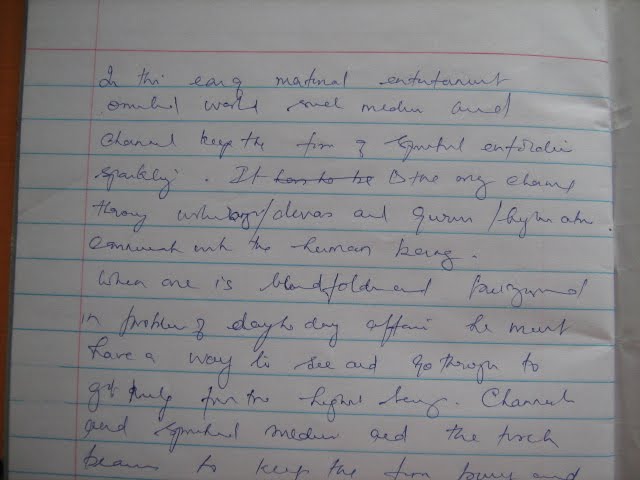 In this era of material entertainment
world such medium and
channel keep the fire of spiritual
sparkling. It has to be is the only channel
through which gods/devas and gurus/
communicate with the human being.
When one is blindfold and
in problem of day to day affair he must
have a way to see and go through to
get help from the higher being. Channel
and spiritual medium are the torch
to keep the fire and